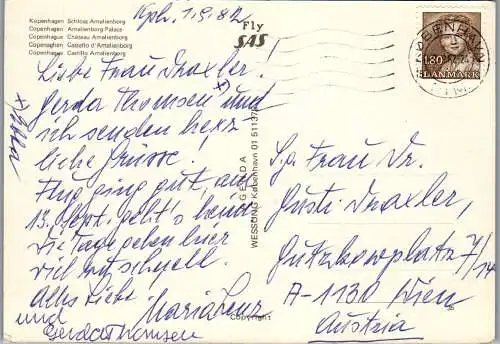 Kopenhagen Schloss Amalienborg
Copenhagen Amalienborg Palace
Copenhague Château Amalienborg
Copenaghen Castello d'Amalienborg
Copenhague Castillo Amalienborg
Kph. 1.9.82
Fly
SAS
KØBENHAVN
180
DANMARK
Liebe Frau Draxler!
Gerda Thomsen x) und
ich senden herz-
liche Grüsse.
Flug ging gut, am
13. Sept. geht's heim
die Tage gehen hier
viel zu schnell.
Alles Liebe
Maria Lenz
und
Gerda Thomsen
GEVDA
WESSUNG København 01 511372
S.g. Frau Dr.
Gusti Draxler,
Gutzkowplatz 7/14
A-1130 Wien
Austria
Copyright